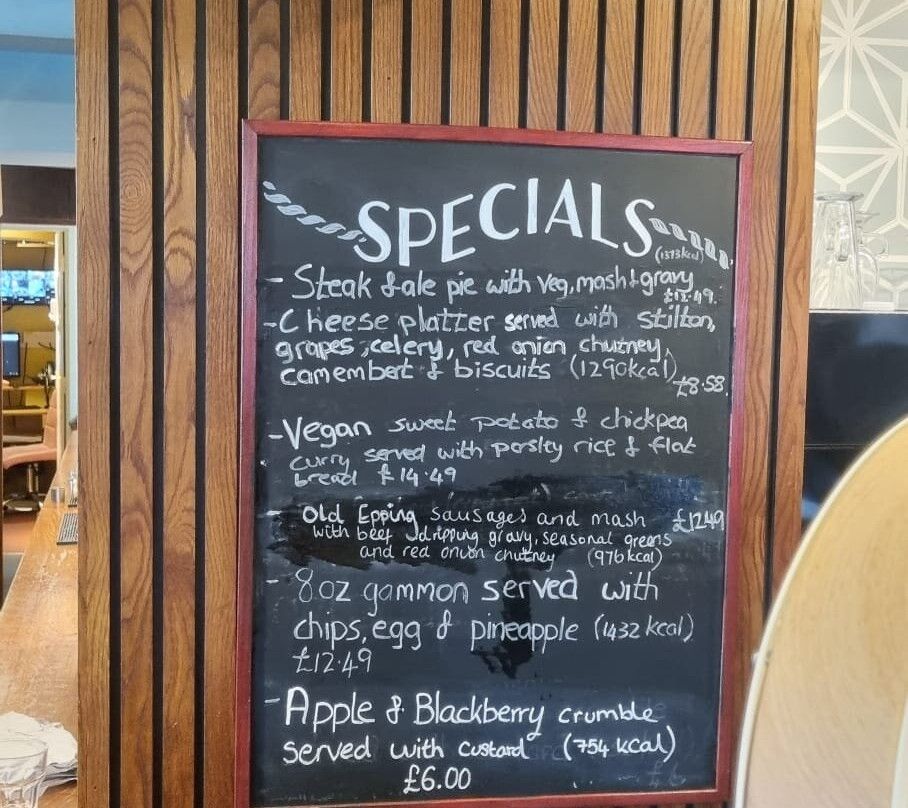 SPECIALS
(1373kcal)
- Steak & ale pie with veg, mash & gravy
£12.49
- Cheese platter served with stilton,
grapes, celery, red onion chutney,
camembert & biscuits (1290kcal)
£8.58
- Vegan sweet potato & chickpea
curry served with parsley rice & flat
bread £14.49
- Old Epping sausages and mash £12.49
with beef dripping gravy, seasonal greens
and red onion chutney (976kcal)
- 8oz gammon served with
chips, egg & pineapple (1432 kcal)
£12.49
- Apple & Blackberry crumble
served with custard (754 kcal)
£6.00